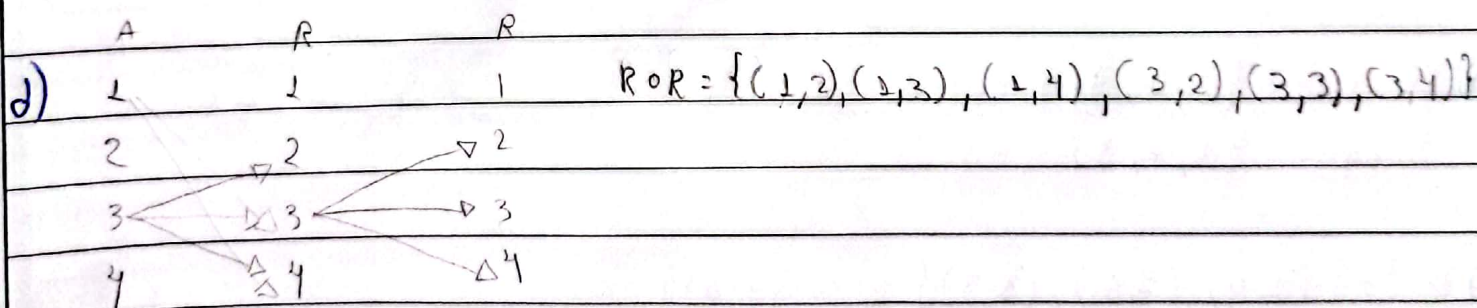 A R R
d) 1 1 1 R∘R = {(1,2),(1,3),(1,4),(3,2),(3,3),(3,4)}
2 2 2
3 3 3
4 4 4